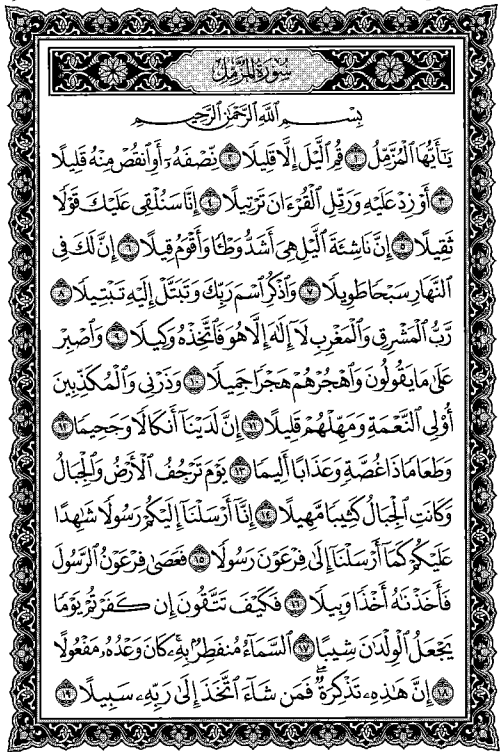 سُورَةُ الْمُزَّمِّلِ
بِسْمِ اللَّهِ الرَّحْمَٰنِ الرَّحِيمِ
يَٰٓأَيُّهَا ٱلْمُزَّمِّلُ ١ قُمِ ٱلَّيْلَ إِلَّا قَلِيلًا ٢ نِّصْفَهُۥٓ أَوِ ٱنقُصْ مِنْهُ قَلِيلًا
٣ أَوْ زِدْ عَلَيْهِ وَرَتِّلِ ٱلْقُرْءَانَ تَرْتِيلًا ٤ إِنَّا سَنُلْقِى عَلَيْكَ قَوْلًا
ثَقِيلًا ٥ إِنَّ نَاشِئَةَ ٱلَّيْلِ هِىَ أَشَدُّ وَطْـًٔا وَأَقْوَمُ قِيلًا ٦ إِنَّ لَكَ فِى
ٱلنَّهَارِ سَبْحًا طَوِيلًا ٧ وَٱذْكُرِ ٱسْمَ رَبِّكَ وَتَبَتَّلْ إِلَيْهِ تَبْتِيلًا ٨
رَّبُّ ٱلْمَشْرِقِ وَٱلْمَغْرِبِ لَآ إِلَٰهَ إِلَّا هُوَ فَٱتَّخِذْهُ وَكِيلًا ٩ وَٱصْبِرْ
عَلَىٰ مَا يَقُولُونَ وَٱهْجُرْهُمْ هَجْرًا جَمِيلًا ١٠ وَذَرْنِى وَٱلْمُكَذِّبِينَ
أُو۟لِى ٱلنَّعْمَةِ وَمَهِّلْهُمْ قَلِيلًا ١١ إِنَّ لَدَيْنَآ أَنكَالًا وَجَحِيمًا ١٢
وَطَعَامًا ذَا غُصَّةٍ وَعَذَابًا أَلِيمًا ١٣ يَوْمَ تَرْجُفُ ٱلْأَرْضُ وَٱلْجِبَالُ
وَكَانَتِ ٱلْجِبَالُ كَثِيبًا مَّهِيلًا ١٤ إِنَّآ أَرْسَلْنَآ إِلَيْكُمْ رَسُولًا شَٰهِدًا
عَلَيْكُمْ كَمَآ أَرْسَلْنَآ إِلَىٰ فِرْعَوْنَ رَسُولًا ١٥ فَعَصَىٰ فِرْعَوْنُ ٱلرَّسُولَ
فَأَخَذْنَٰهُ أَخْذًا وَبِيلًا ١٦ فَكَيْفَ تَتَّقُونَ إِن كَفَرْتُمْ يَوْمًا
يَجْعَلُ ٱلْوِلْدَٰنَ شِيبًا ١٧ ٱلسَّمَآءُ مُنفَطِرٌۢ بِهِۦ ۚ كَانَ وَعْدُهُۥ مَفْعُولًا
١٨ إِنَّ هَٰذِهِۦ تَذْكِرَةٌ ۖ فَمَن شَآءَ ٱتَّخَذَ إِلَىٰ رَبِّهِۦ سَبِيلًا ١٩